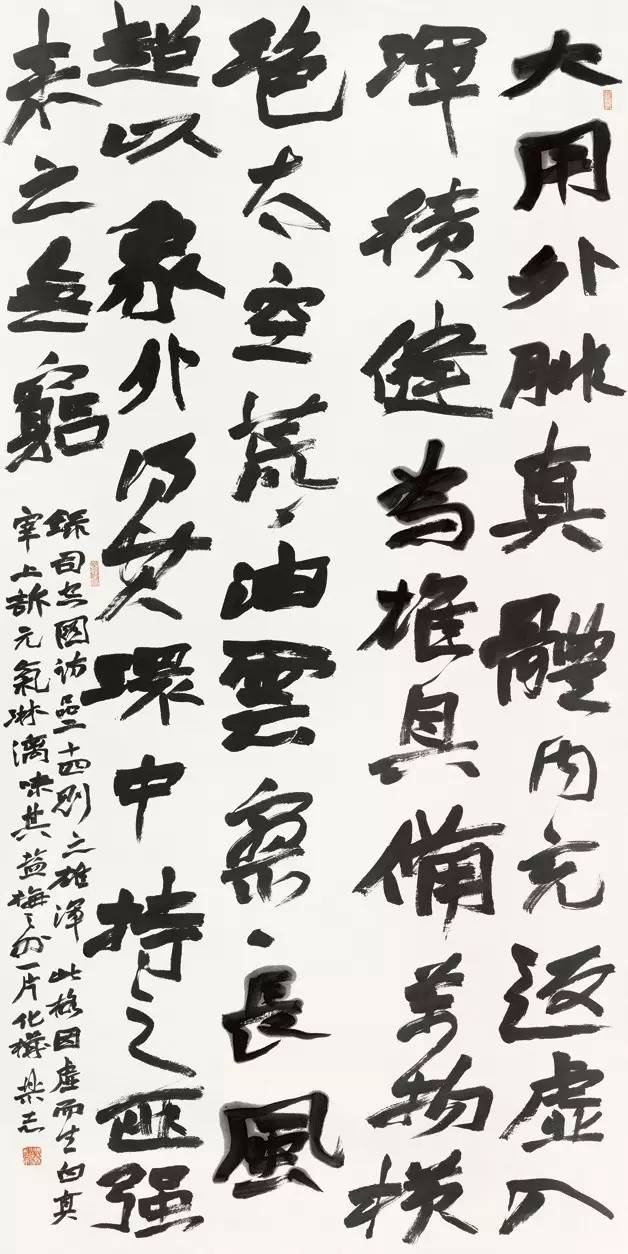 大用外腓真體内充返虛入
渾積健為雄具備萬物橫
絕太空荒、油雲寥、長風
超以象外得其環中持之匪强
来之無窮
錄司空圖詩品二十四則之雄渾 此格因虛而生白真
宰上訴元氣淋漓味其梅之外一片化機